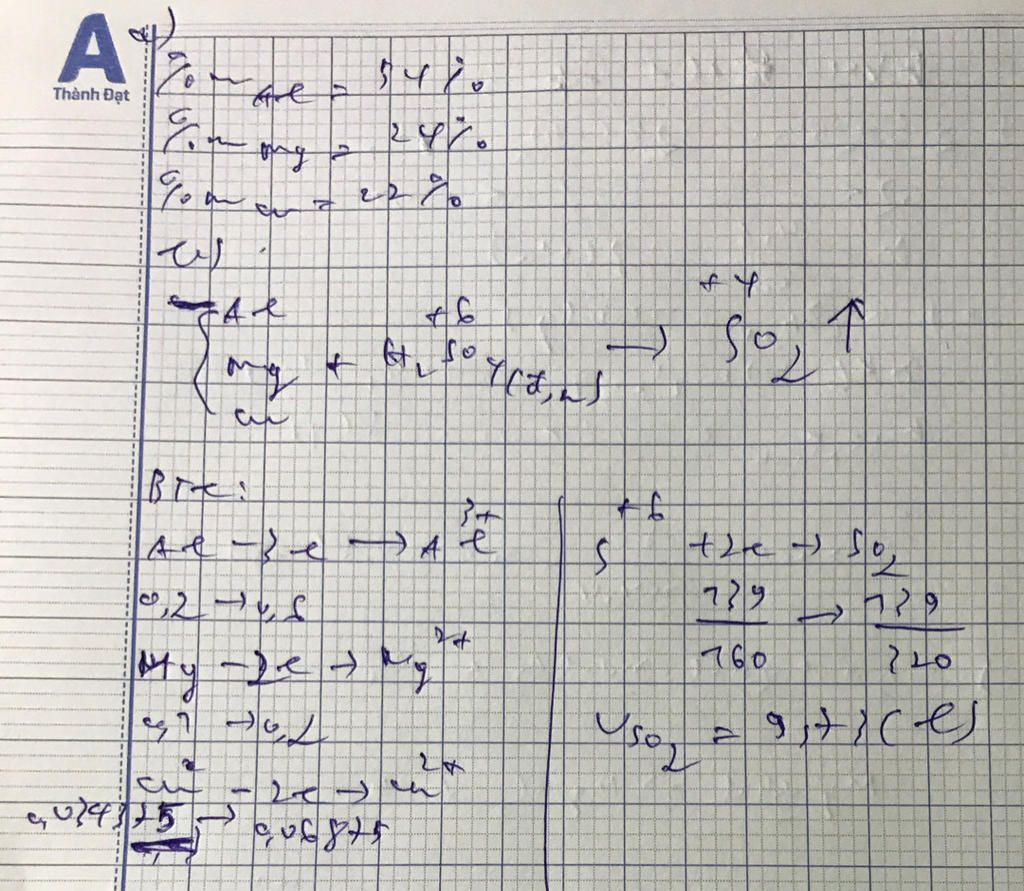 A
Thành Đạt
a)
%m Al = 54%
%m Mg = 24%
%m Cu = 22%
b)
Al
Mg + H2SO4(đ,n) → SO2↑
Cu
+6
+4
BTe:
Al - 3e → Al3+
0,2 → 0,6
Mg - 2e → Mg2+
0,1 → 0,2
Cu - 2e → Cu2+
0,034375 → 0,06875
+6
S +2e → SO2
139/160 → 139/320
VSO2 = 9,73(l)